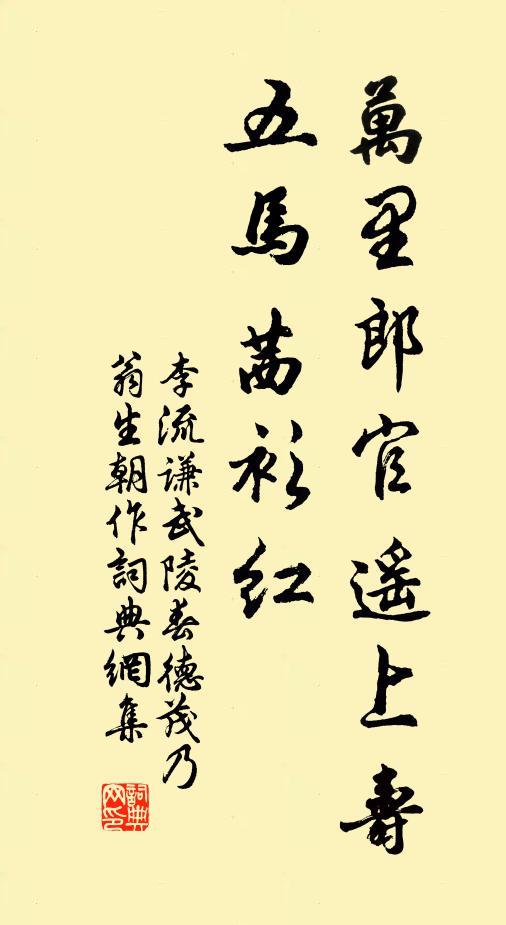 萬里郎官遙上壽
五馬茜衫紅
李流謙武陵春德茂乃
翁生朝作詞典網集
詞典網印